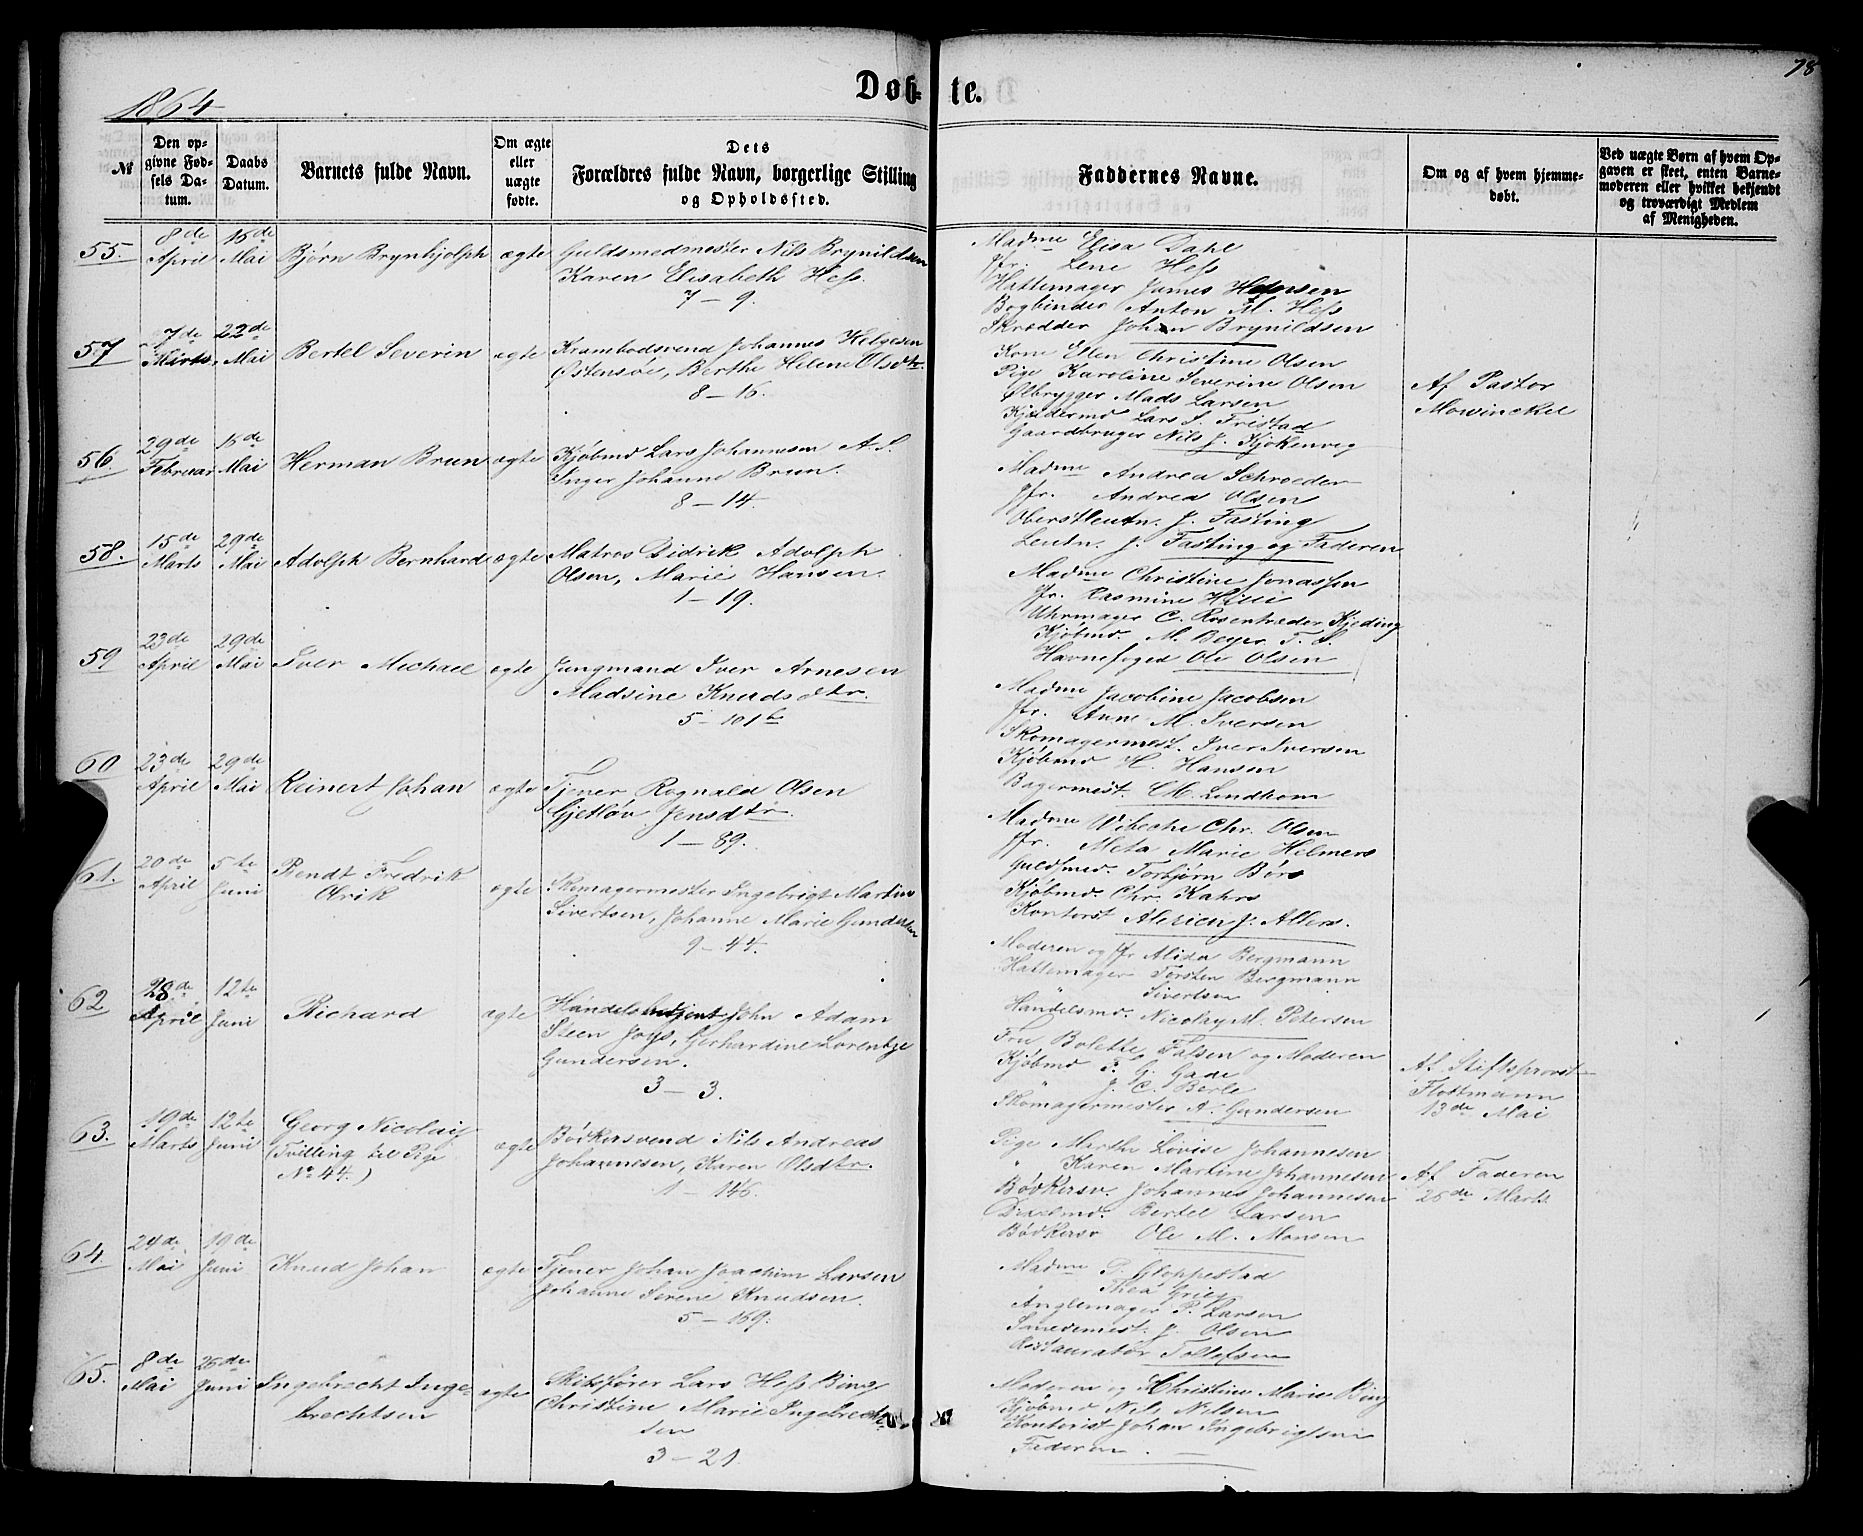 78
1864
Døb- te.
№
Den op-
givne Fød-
sels Da-
tum.
Daabs
Datum.
Barnets fulde Navn.
Om ægte
eller
uægte
fødte.
Dets
Forældres fulde Navn, borgerlige Stilling
og Opholdssted.
Faddernes Navne.
Om og af hvem hjemme-
døbt.
Ved uægte Børn af hvem Op-
gaven er skeet, enten Barne-
moderen eller hvilket bekjendt
og troværdigt Medlem
af Menigheden.
55.
8de
April
15de
Mai
Bjørn Brynhjolph
ægte
Guldsmedmester Nils Brynildsen
Karen Elisabeth Hess.
7 – 9.
Madme Elisa Dahl
Jfr. Lene Hess
Hattemager James
Bogbinder Anton M. Hess
Skrædder Johan Brynildsen
57
7de
Marts,
22de
Mai
Bertel Severin
ægte
Krambodsvend Johannes Helgesen
Østensøe, Berthe Helene Olsdtr.
8 – 16.
Kone Ellen Christine Olsen
Pige Karoline Severine Olsen
Ølbrygger Mads Larsen
Kjældermd Lars S. Fristad
Gaardbruger Nils J. Kjøkenveg
Af Pastor
Mowinckel
56.
29de
Februar
15de
Mai
Herman Brun
ægte
Kjøbmd Lars Johannesen A. S.
Inger Johanne Brun.
8 – 14.
Madme Andrea Schroeder
Jfr. Andrea Olsen
Oberstleutn. J. Fasting
Leutn. J. Fasting og Faderen
58.
15de
Marts
29de
Mai
Adolph Bernhard
ægte
Matros Didrik Adolph
Olsen, Marie Hansen.
1 – 19.
Madme Christine Jonassen
Jfr. Rasmine Hille
Uhrmager C. Rosentræder Kjeding
Kjøbmd. M. Beyer T. S.
Havnefoged Ole Olsen
59
23de
April
29de
Mai
Iver Michael
ægte
Jungmand Iver Arnesen
Madsine Knudsdtr.
5 – 101b
Madme Jacobine Jacobsen
Jfr. Anne M. Iversen
Skomagermest. Iver Iversen
Kjøbmd H. Hansen
Bagermest. CM. Lindhom
60
23de
April
29de
Mai
Reinert Johan
ægte
Tjener Rognald Olsen
Gjetløv Jensdtr.
1 – 89.
Madme Wibecke Chr. Olsen
Jfr. Meta Marie Helmers
Guldsmed. Torbjørn Børs
Kjøbmd. Chr. Kahrs
Kontorist J. Allers.
61.
20de
April
5te
Juni
Bendt Fredrik
Chrik
ægte
Skomagermester Ingebrigt Martin
Sivertsen, Johanne Marie Gundersen
9 – 44.
Moderen og Jfr Alida Bergmann
Hattemager Torsten Bergmann
Sivertsen
Handelsmd. Nicolay M. Petersen
62
28de
April
12te
Juni
Richard
ægte
Handelsbetjent John Adam
Steen Joys, Gerhardine Lorentze
Gundersen.
3 – 3.
Fru Bolette Falsen og Moderen
Kjøbmd F. G. Gade
J. C. Berle
Skomagermester A. Gundersen
Af Stiftsprovst
Flottmann
13de Mai
63.
19de
Marts
12te
Juni
Georg Nicolay
(Tvilling til Pige
No 44.)
ægte
Bødkersvend Nils Andreas
Johannesen, Karen Olsdtr.
1 – 146.
Pige Marthe Lovise Johannesen
" Karen Martine Johannesen
Bødkersv. Johannes Johannesen
Bertel Larsen
Bødkersv Ole M. Monsen
Af Faderen
25de Marts
64
24de
Mai
19de
Juni
Knud Johan
ægte
Tjener Johan Joachim Larsen
Johanne Serene Knudsen.
5 – 169.
Madme P. Gloppestad
" Thea Grieg
Anglemager P. Larsen
Smedemest. J. Olsen
Restauratør Tollefsen
65.
8de
Mai
26de
Juni
Ingebrecht Inge-
brechtsen
ægte
Skibsfører Lars Hess Bing
Christine Marie Ingebrecht-
sen
3 – 21
Moderen og Christine Marie Bing
Kjøbmd Nils Nilsen
Kontorist Johan Ingebrigtsen
Faderen.